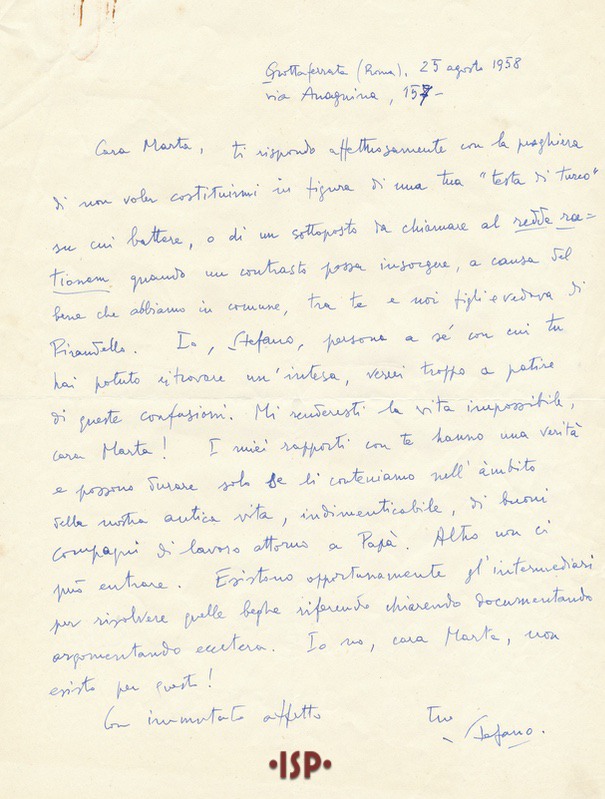 Grottaferrata (Roma), 25 agosto 1958
via Anagnina, 157 –
Cara Marta, ti rispondo affettuosamente con la preghiera
di non voler costituirmi in figura di una tua "testa di turco"
su cui battere, o di un sottoposto da chiamare al redde ra=
tionem quando un contrasto possa insorgere, a causa del
bene che abbiamo in comune, tra te e noi figli e vedova di
Pirandello. Io, Stefano, persona a sé con cui tu
hai potuto ritrovare un'intesa, verrei troppo a patire
di queste confusioni. Mi renderesti la vita impossibile,
cara Marta! I miei rapporti con te hanno una verità
e possono durare solo se li conteniamo nell'àmbito
della nostra antica vita, indimenticabile, di buoni
compagni di lavoro attorno a Papà. Altro non ci
può entrare. Esistono opportunamente gl'intermediari
per risolvere quelle beghe riferendo chiarendo documentando
argomentando eccetera. Io no, cara Marta, non
esisto per questo!
Con immutato affetto tuo
Stefano.
•ISP•